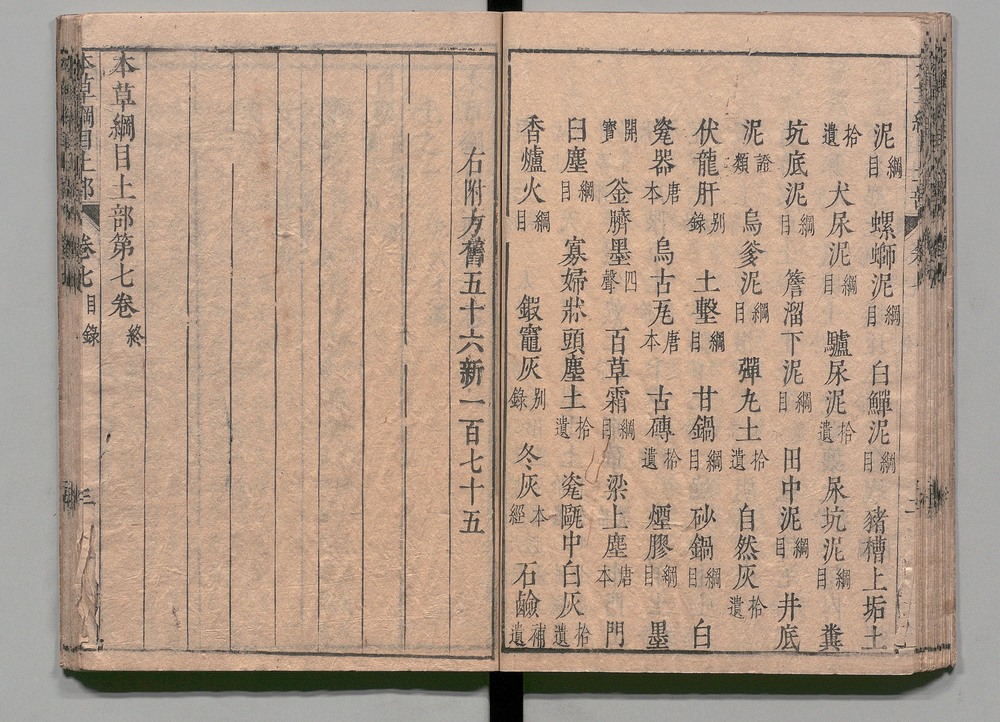 泥綱目　螺螄泥綱目　白鱓泥綱目　豬槽上垢土
拾遺　犬尿泥綱目　驢尿泥拾遺　尿坑泥綱目　糞
坑底泥綱目　簷溜下泥綱目　田中泥綱目　井底
泥證類　烏爹泥綱目　彈丸土拾遺　自然灰拾遺
伏龍肝别錄　土墼綱目　甘鍋綱目　砂鍋綱目　白
瓷器唐本　烏古瓦唐本　古磚拾遺　煙膠綱目　墨
開寶　釜臍墨四聲　百草霜綱目　梁上塵唐本　門
臼塵綱目　寡婦牀頭塵土拾遺　瓷甌中白灰拾遺
香爐灰綱目　鍜竈灰别錄　冬灰本經　石鹼補遺
右附方舊五十六新一百七十五
本草綱目土部第七卷終
本草綱目土部　卷七目錄　三